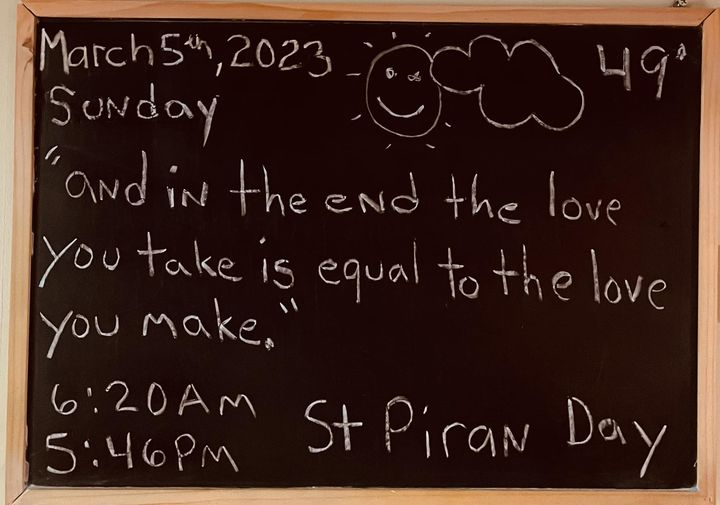 March 5th, 2023
49°
Sunday
"and in the end the love
you take is equal to the love
you make."
6:20AM
5:46PM
St Piran Day